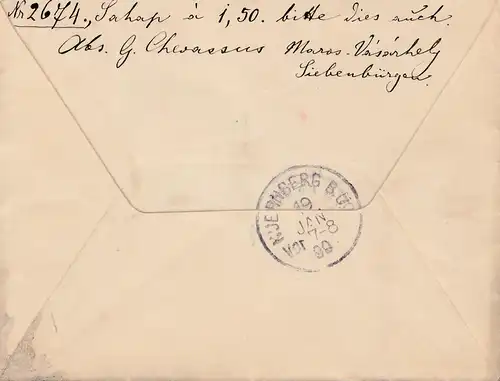 Nr 2674. „Sahap à 1,50. bitte dies auch.
Abs. G. Chevassus Maros-Vásárhely
Siebenbürgen.
NUERNBERG B.
19
JAN
Vor 7-8
99